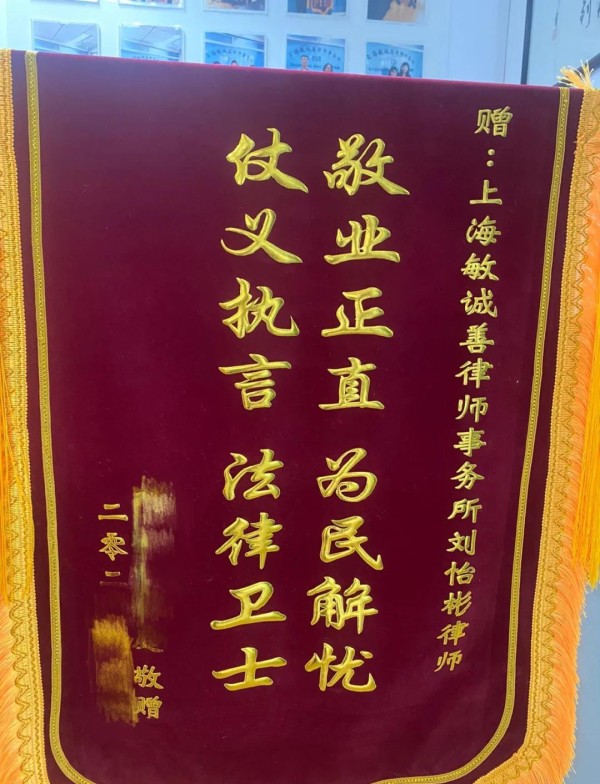 赠：上海敏诚善律师事务所刘怡彬律师
敬业正直 为民解忧
仗义执言 法律卫士
敬赠
二零二